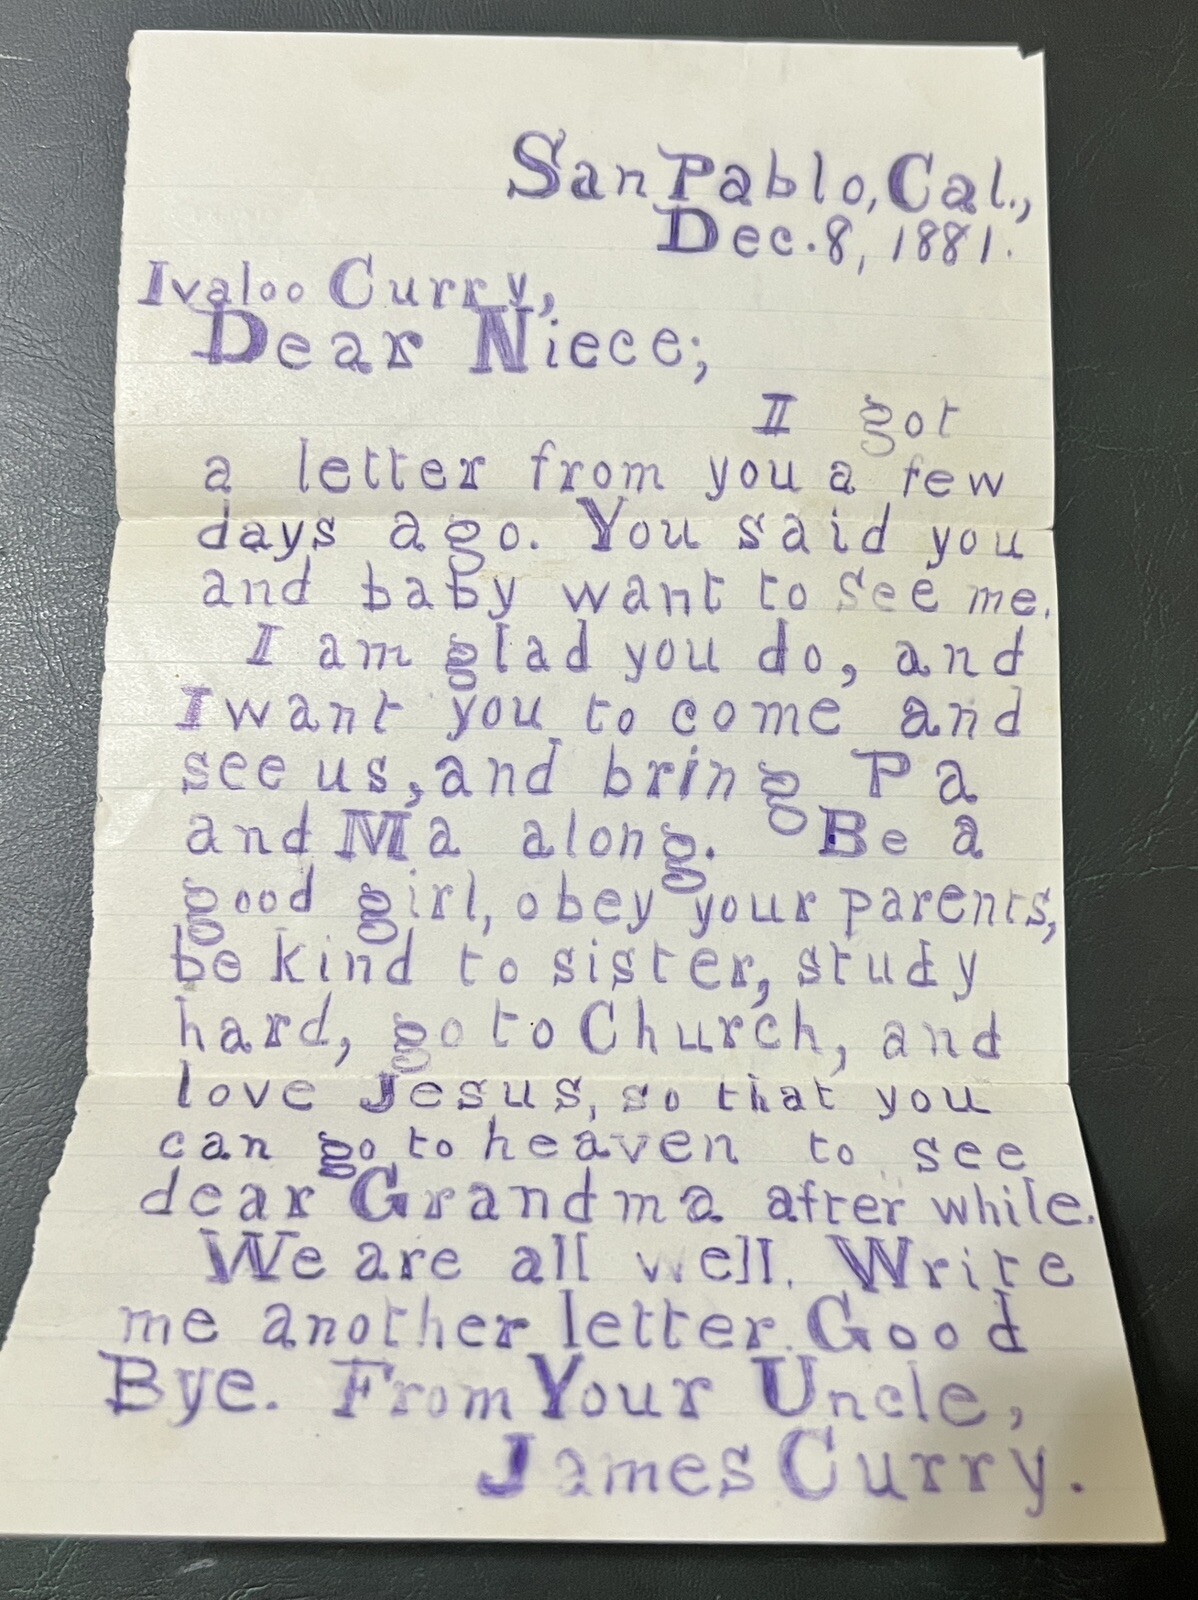 San Pablo, Cal.,
Dec. 8, 1881.
Ivaloo Curry,
Dear Niece;
I got
a letter from you a few
days ago. You said you
and baby want to see me.
I am glad you do, and
I want you to come and
see us, and bring Pa
and Ma along. Be a
good girl, obey your parents,
be kind to sister, study
hard, go to Church, and
love Jesus, so that you
can go to heaven to see
dear Grandma after while.
We are all well. Write
me another letter. Good
Bye. From Your Uncle,
James Curry.